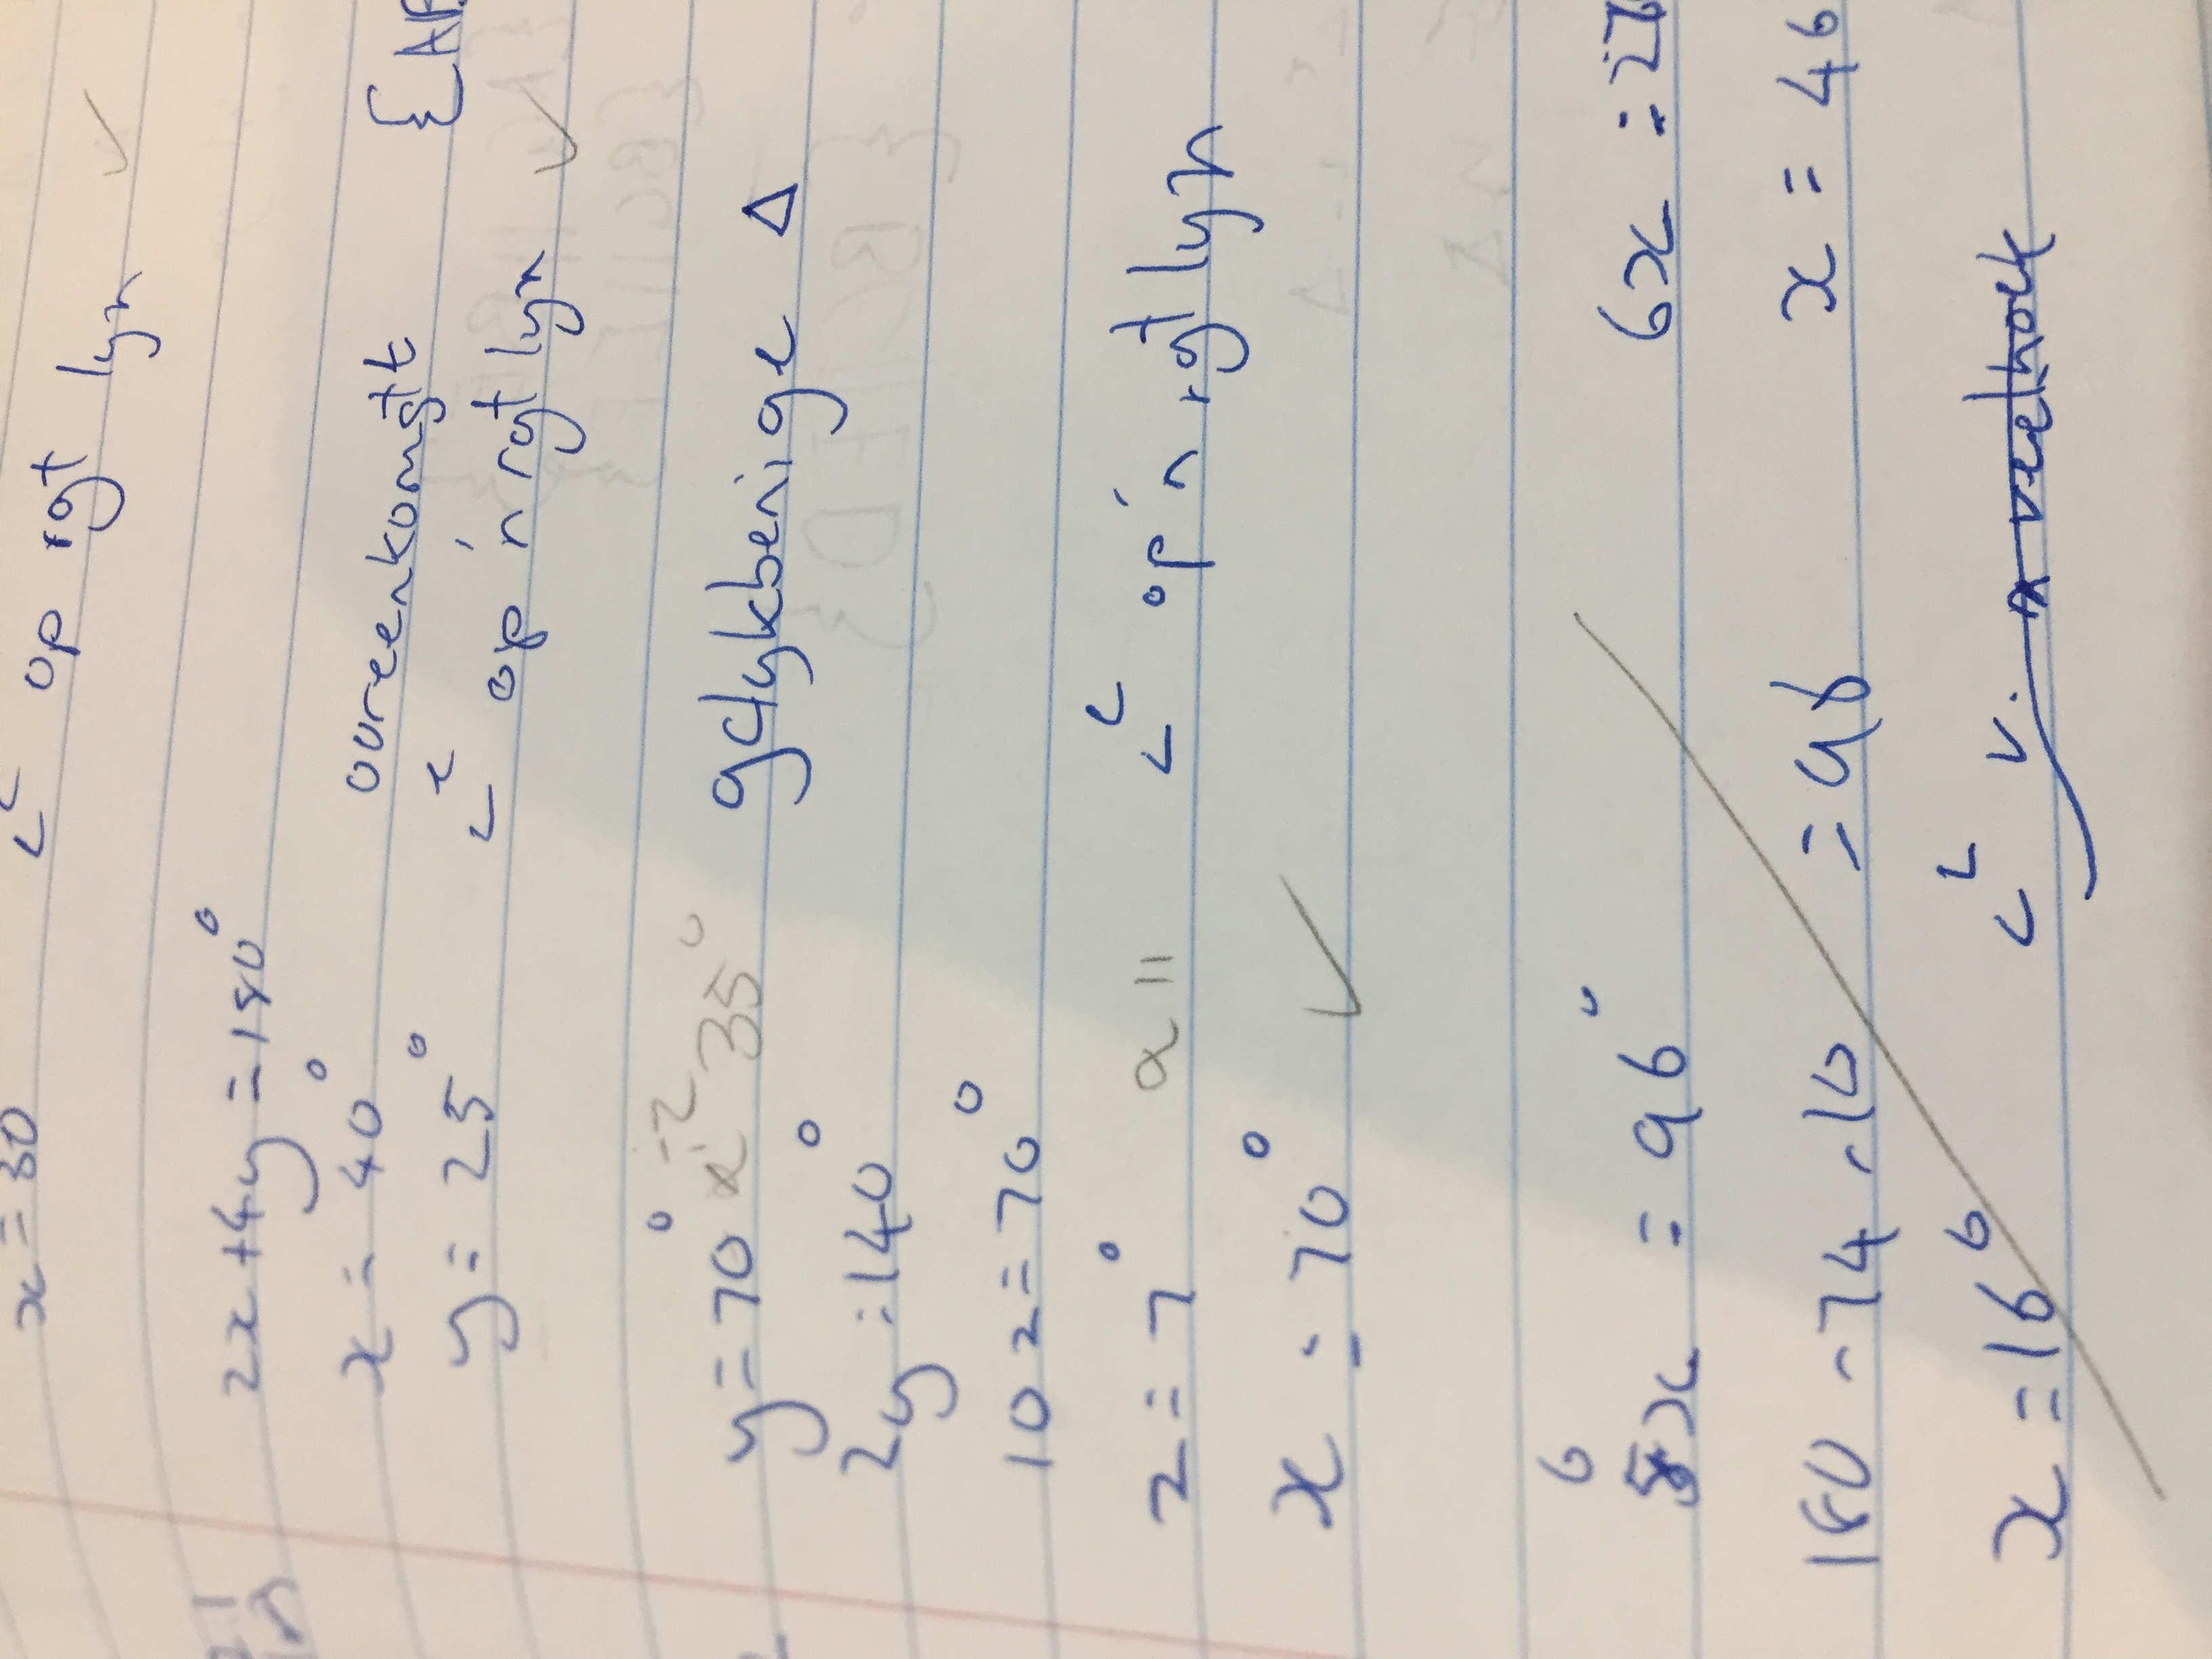 x = 30 ∠ᵉ op rgt lyn ✓
2x + 4y = 180°
x = 40° ooreenkomstt {AB
y = 25° ∠ᵉ op 'n rgt lyn ✓
y = 70° 35° gelykbenige Δ
2y = 140°
10z = 70°
z = 7° ∠ᵉ op 'n rgt lyn
x = 70° ✓
6
x = 96° 6x = 27
180 - 74 - 10 = 96 x = 46
x = 16° ∠ᵉ v. n veelhoek